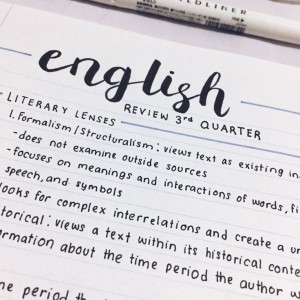 LINER
english
REVIEW 3rd QUARTER
LITERARY LENSES
1. Formalism/Structuralism: views text as existing in
-does not examine outside sources
-focuses on meanings and interactions of words,
speech, and symbols
looks for complex interrelations and create a
torical: views a text within its historical conte
ormation about the time period the author w
me period th